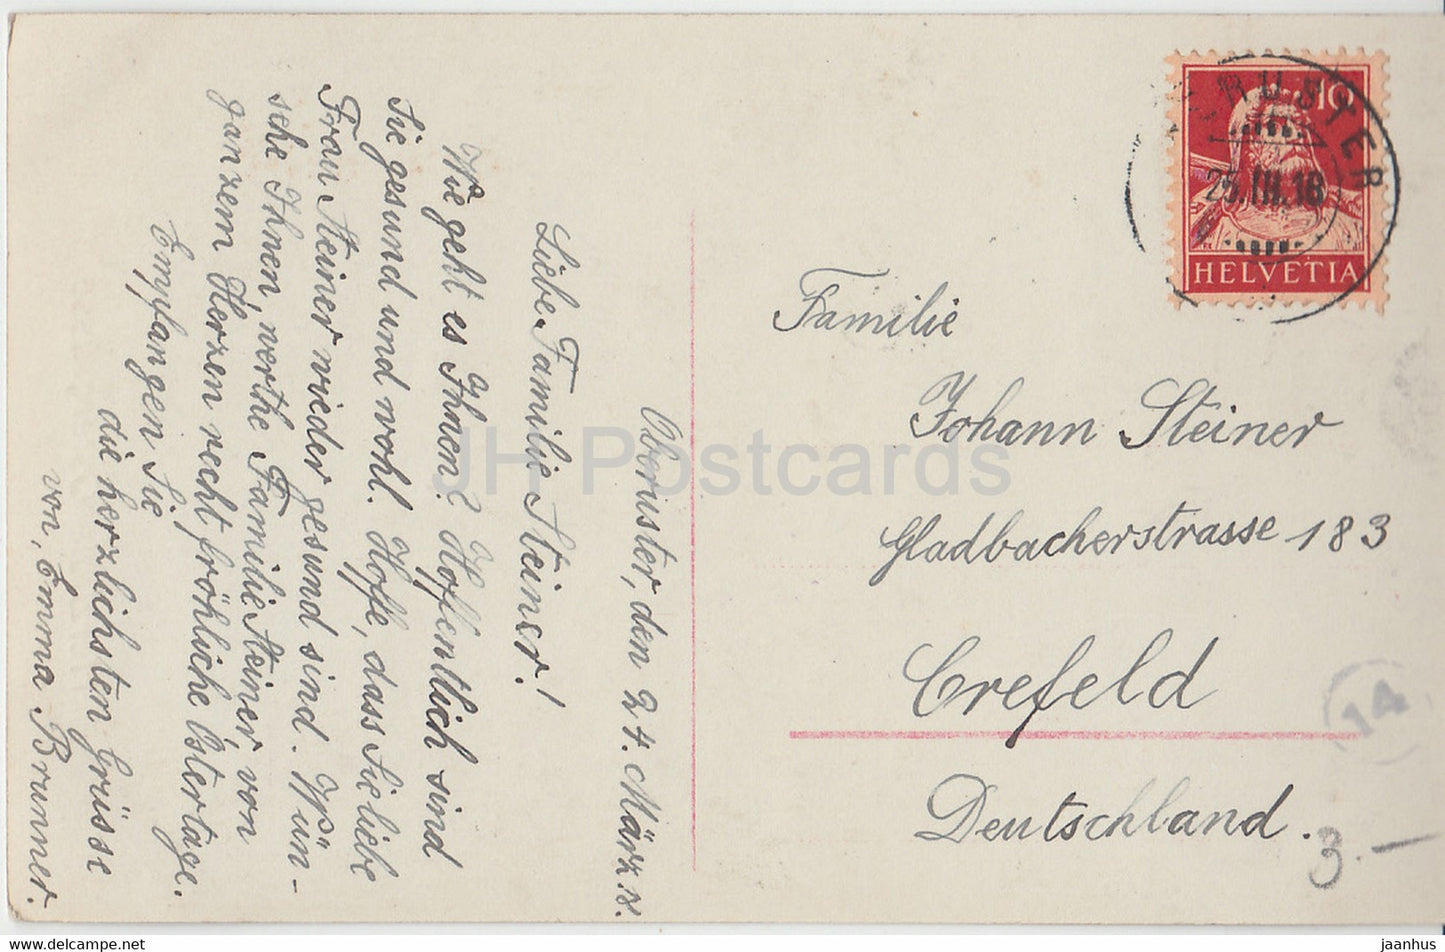 Oberuster, den 24. März 18.
Liebe Familie Steiner!
Wie geht es Ihnen? Hoffentlich sind
Sie gesund und wohl. Hoffe, dass Sie liebe
Frau Steiner wieder gesund sind. Wün-
sche Ihnen, werthe Familie Steiner, von
ganzem Herzen recht fröhliche Ostertage.
Empfangen Sie
die herzlichsten Grüsse
von, Emma Brunner.
10
HELVETIA
25.III.18
Familie
Johann Steiner
Gladbacherstrasse 183
Crefeld
Deutschland.
14
3.-
JH Postcards
hippostcard.com
jaanhus